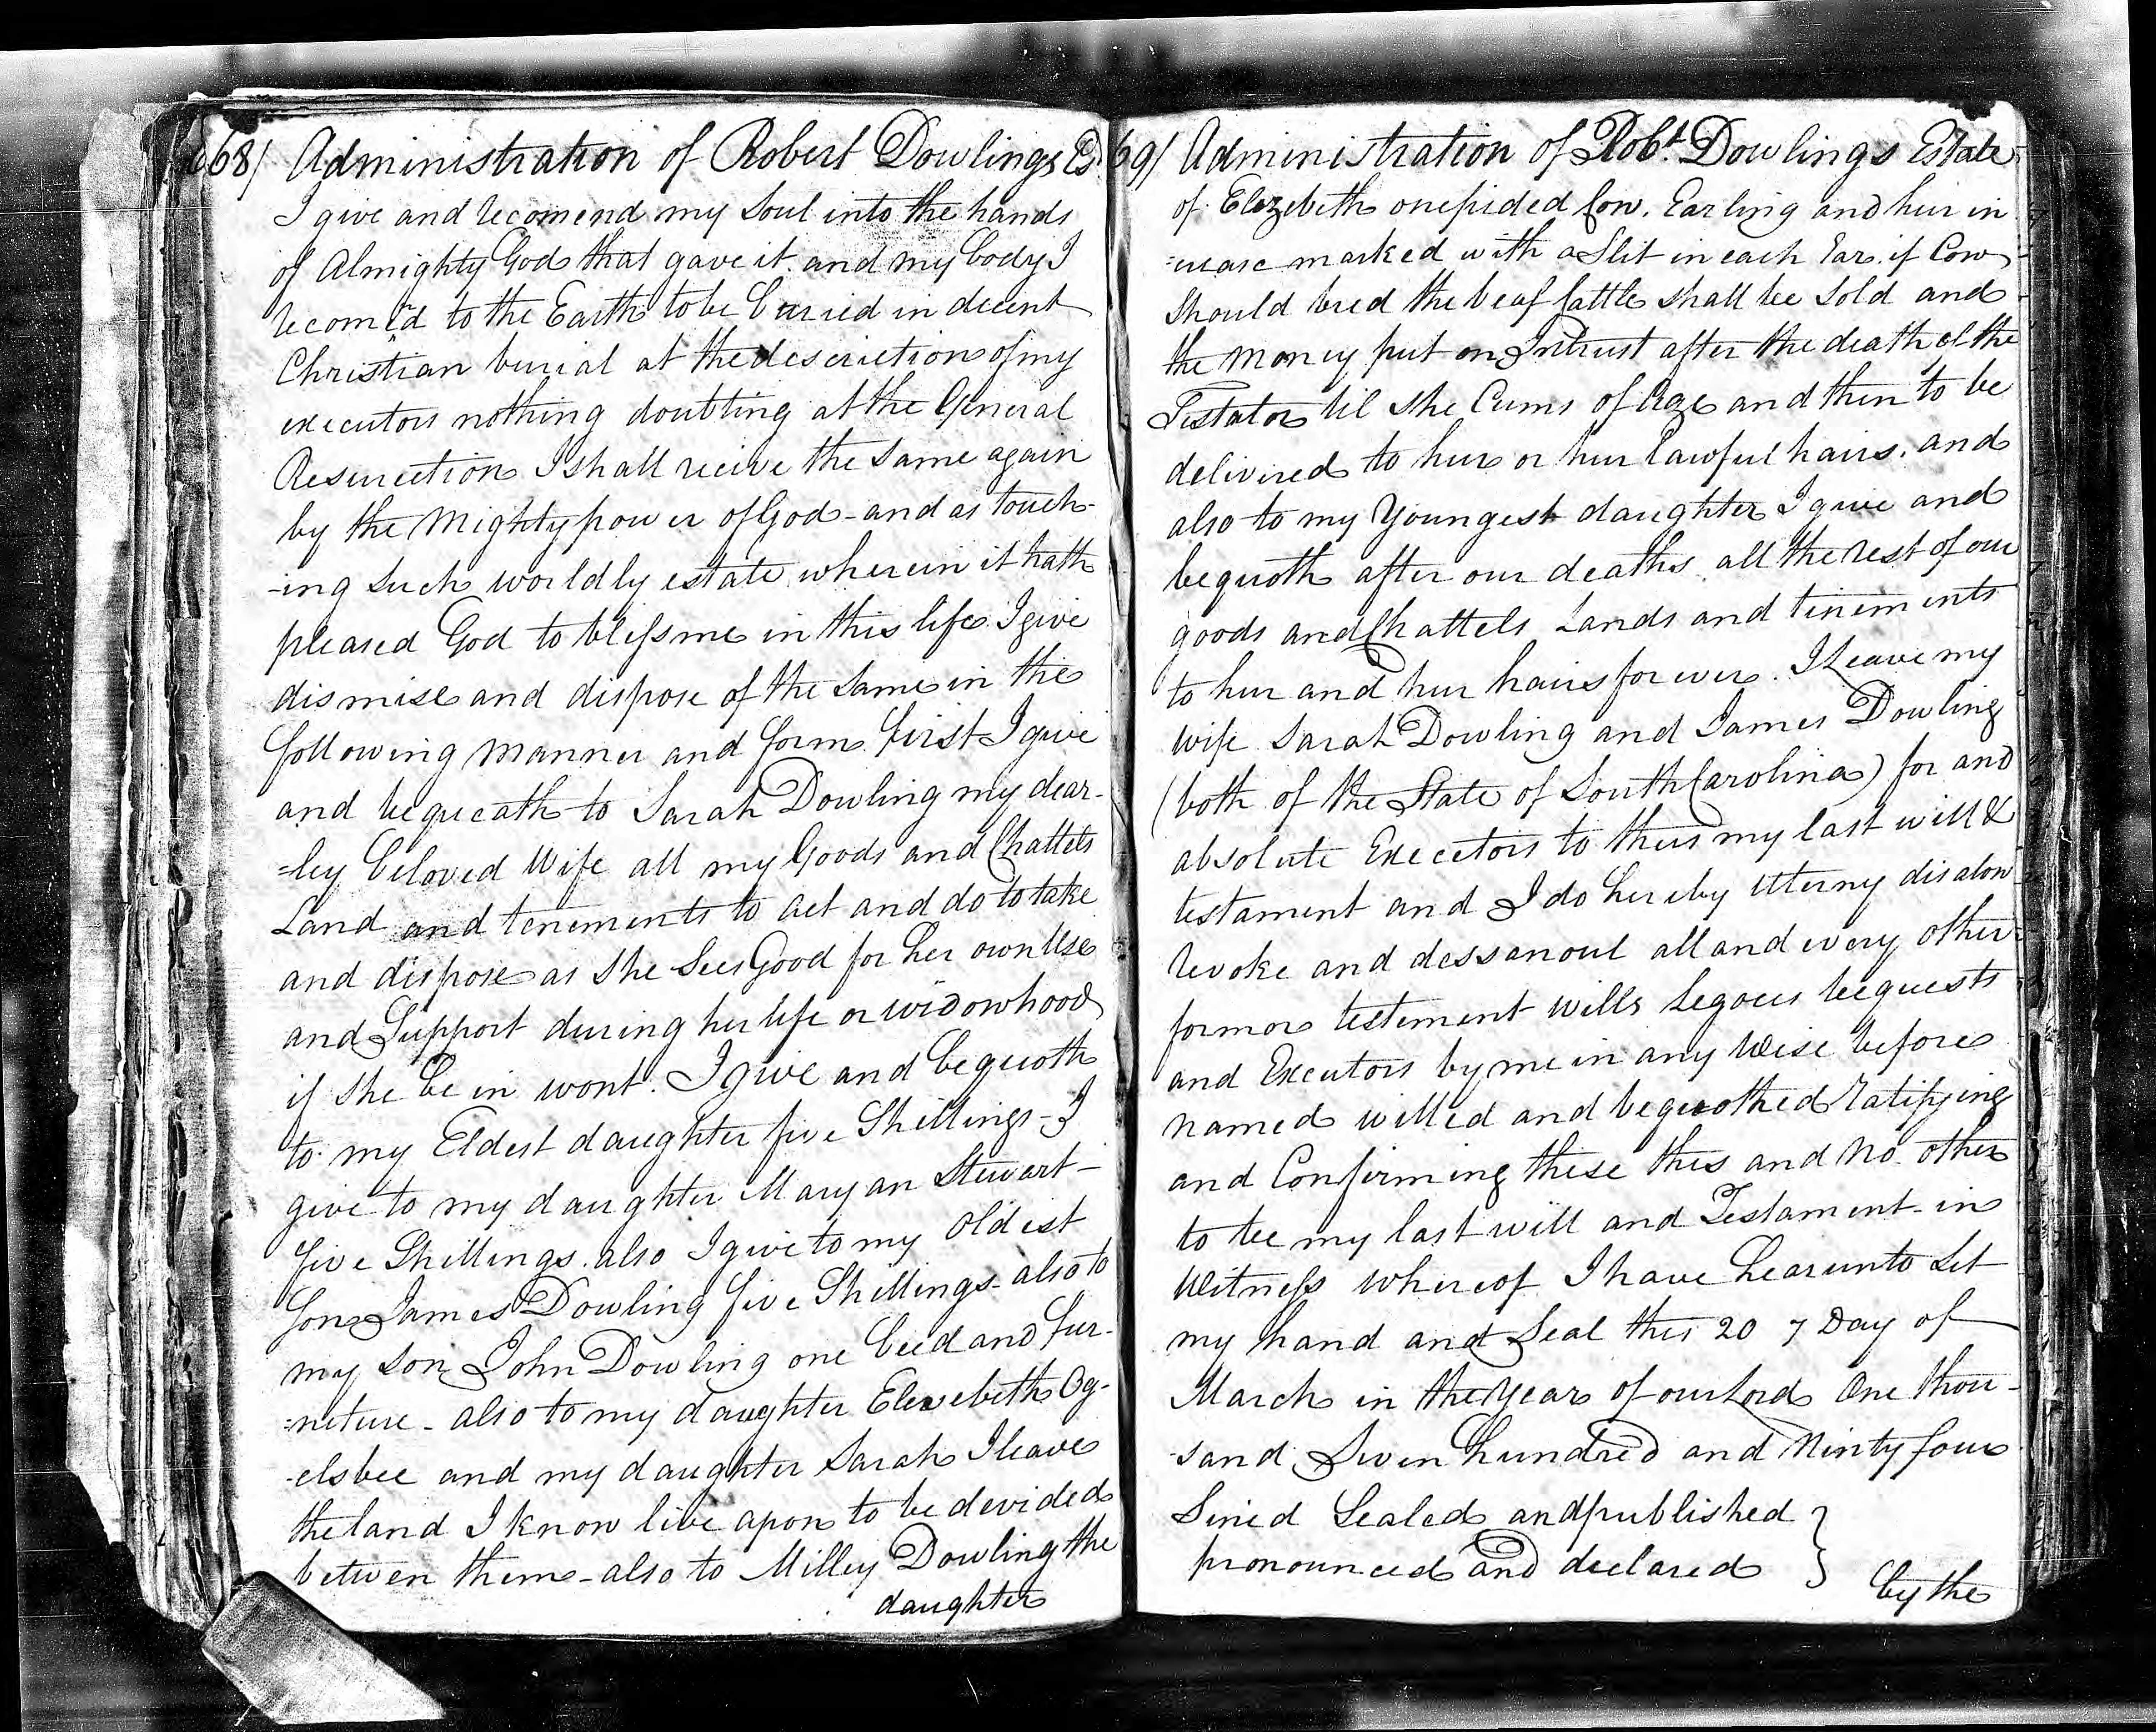 68/ Administration of Robert Dowlings Es.
I give and recomend my Soul into the hands
of Almighty God that gave it. and my body I
recomd to the Earth to be buried in decent
Christian burial at the descrietion of my
executors nothing doubting at the General
Resurection I shall receive the same again
by the Mighty power of God - and as touch-
-ing such worldly estate wherein it hath
pleased God to bless me in this life I give
dismise and dispose of the same in the
following manner and form first I give
and bequeath to Sarah Dowling my dear-
=ley beloved Wife all my Goods and Chattels
Land and tenements to act and do to take
and dispose as she sees Good for her own Use
and Support during her life or widowhood
if she be in wont. I give and bequoth
to my Eldest daughter five Shillings - I
give to my daughter Maryan Stewart -
five Shillings. also I give to my oldest
Son James Dowling five Shillings - also to
my son John Dowling one beed and fur-
=neture - also to my daughter Elezebeth Og-
-elsbee and my daughter Sarah I leave
the land I know live apon to be devided
between them - also to Milley Dowling the
daughter
69/ Administration of Robt Dowlings Estate
of Elezebeth one pided Cow. Earling and hur in
=crease marked with a Slit in each Ear. if Cow
Should bred the beaf Cattle shall be sold and
the Money put on Intrust after the death of the
Testator til she Cums of Age and then to be
delivered to hur or hur lawful hairs. and
also to my Youngest daughter I give and
bequoth after our deaths all the rest of our
goods and Chattels Lands and tinements
to hur and hur hairs for ever. I Leave my
wife Sarah Dowling and James Dowling
(both of the State of South Carolina) for and
absolute Execetors to theis my last will &
testament and I do hereby utterny disalow
revoke and dessanoul all and every other
formor testement wills Legoces bequests
and Executors by me in any Wise before
named willed and bequothed Ratifying
and Confirming these this and No other
to be my last will and Testament - in
Witness whereof I have hearunto Set
my hand and Seal this 20 7 Day of
March in the Year of our Lord One thou-
-sand Seven hundred and Ninty four
Sined Sealed and published }
pronounced and declared }
by the